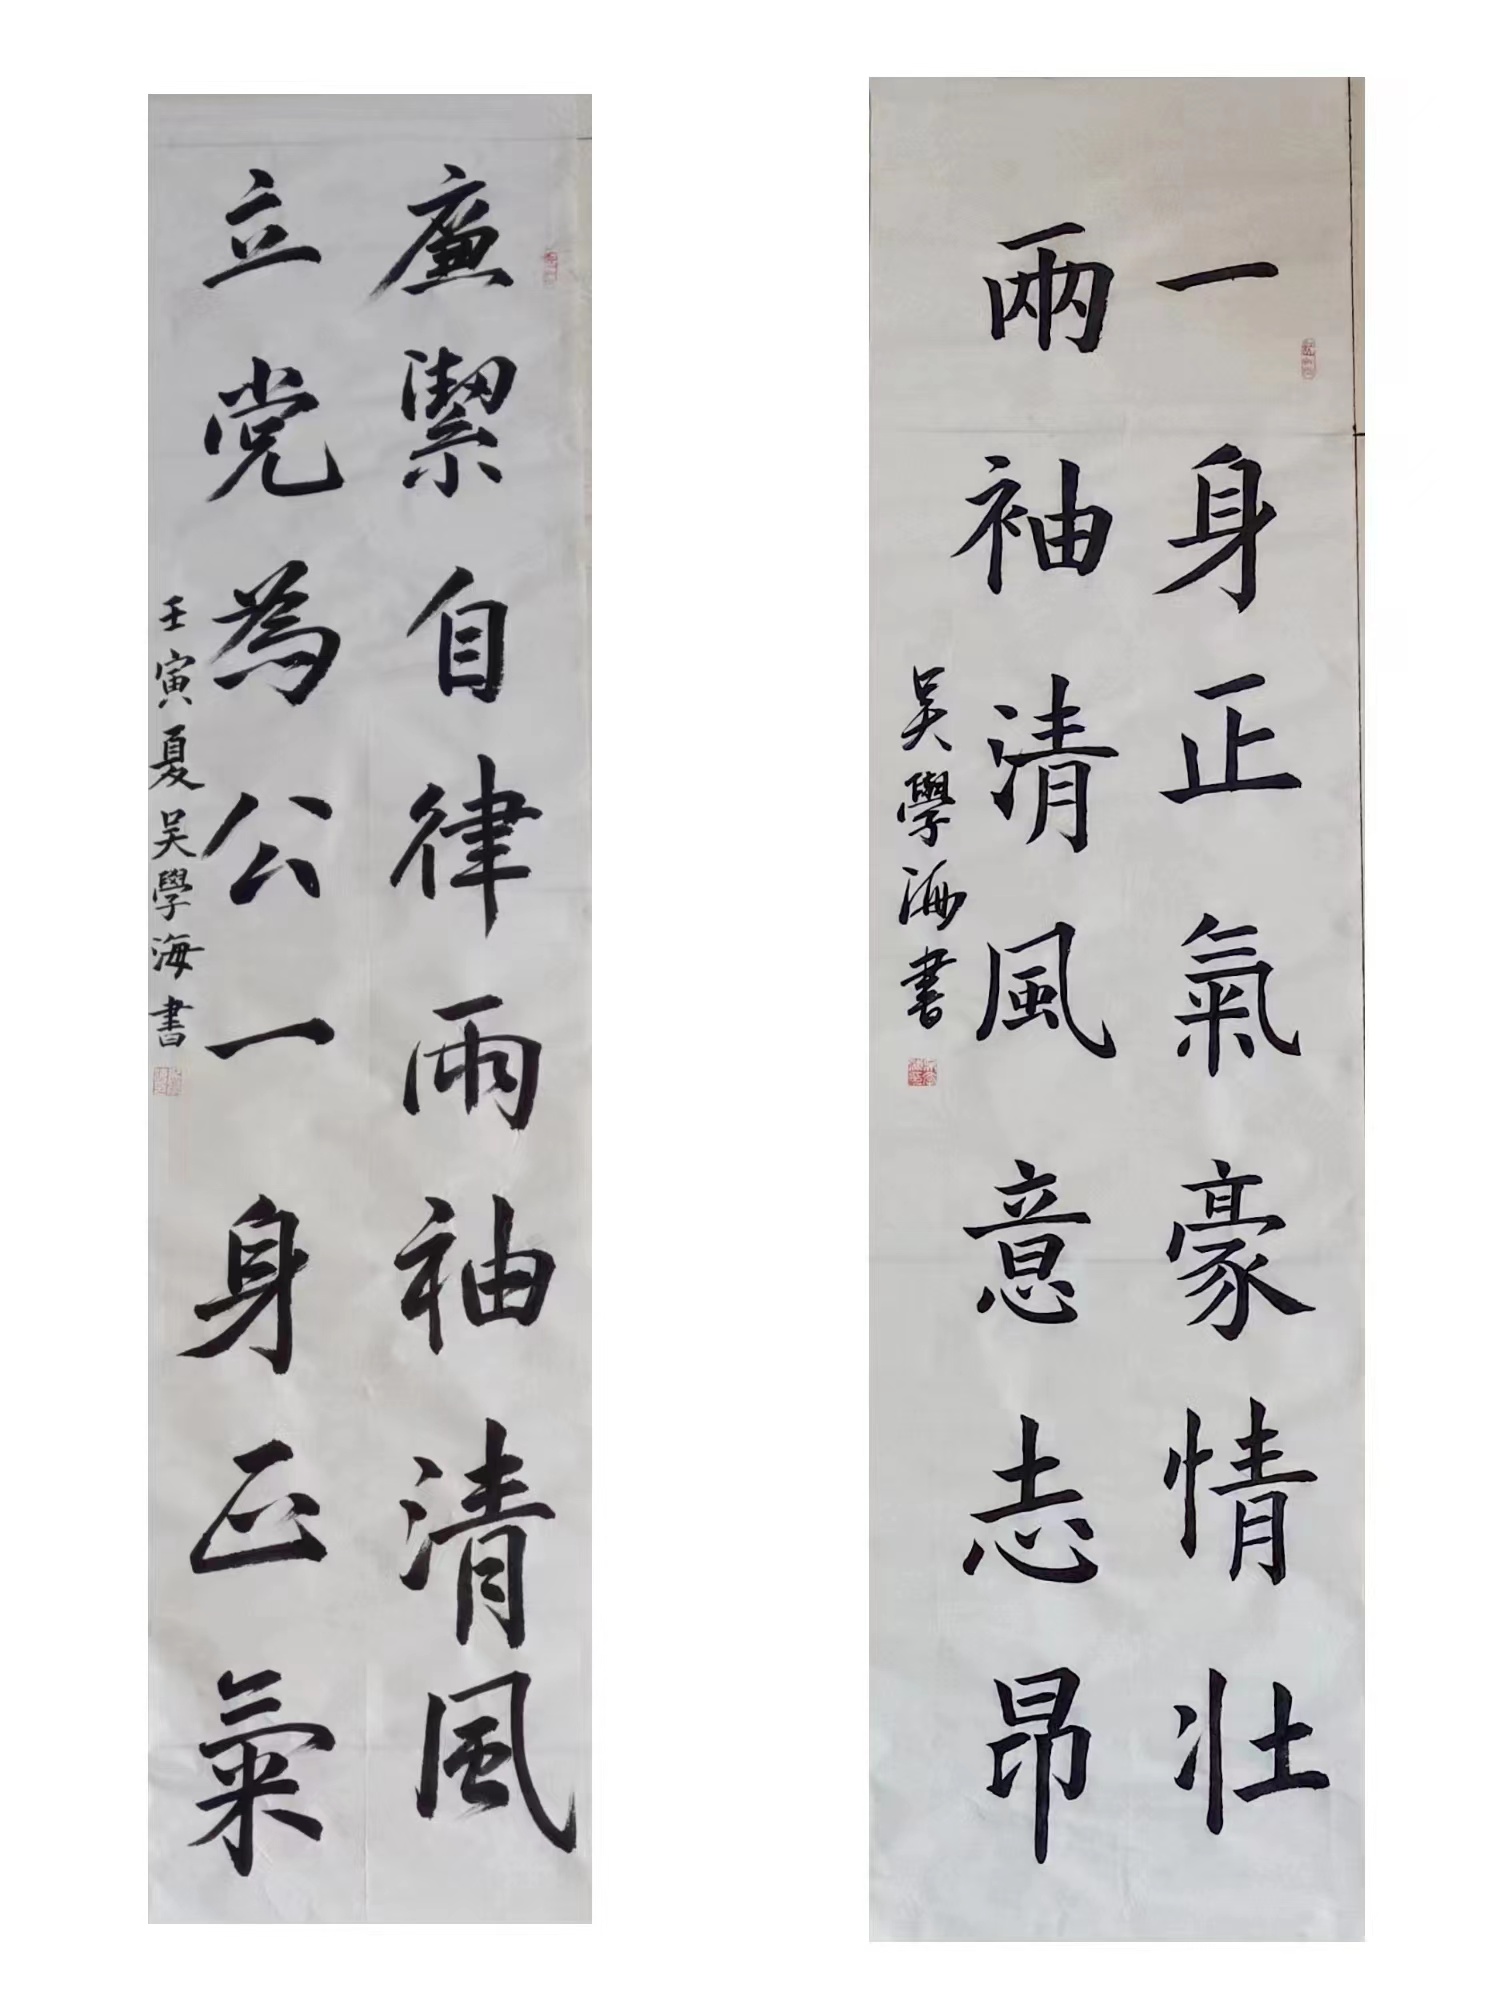 一身正氣豪情壯
兩袖清風意志昂
吴學海書
廉潔自律兩袖清風
立党為公一身正氣
壬寅夏吴學海書